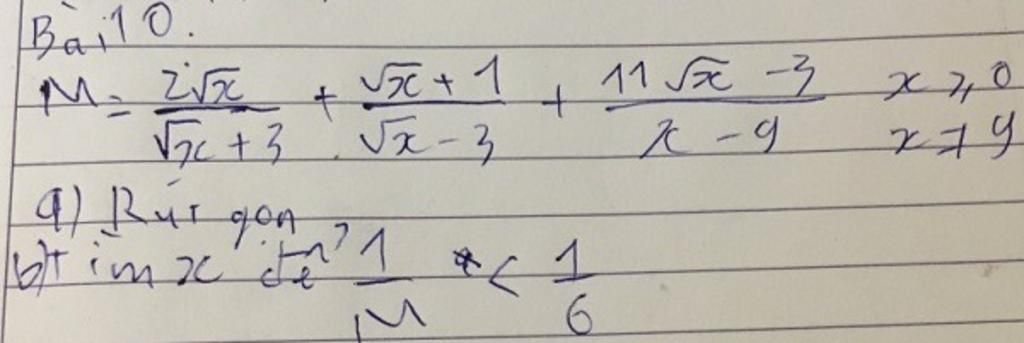 Bài 10.
M = \frac{2\sqrt{x}}{\sqrt{x}+3} + \frac{\sqrt{x}+1}{\sqrt{x}-3} + \frac{11\sqrt{x}-3}{x-9} x ≥ 0 x ≠ 9
a) Rút gọn
b) tìm x để \frac{1}{M} < \frac{1}{6}